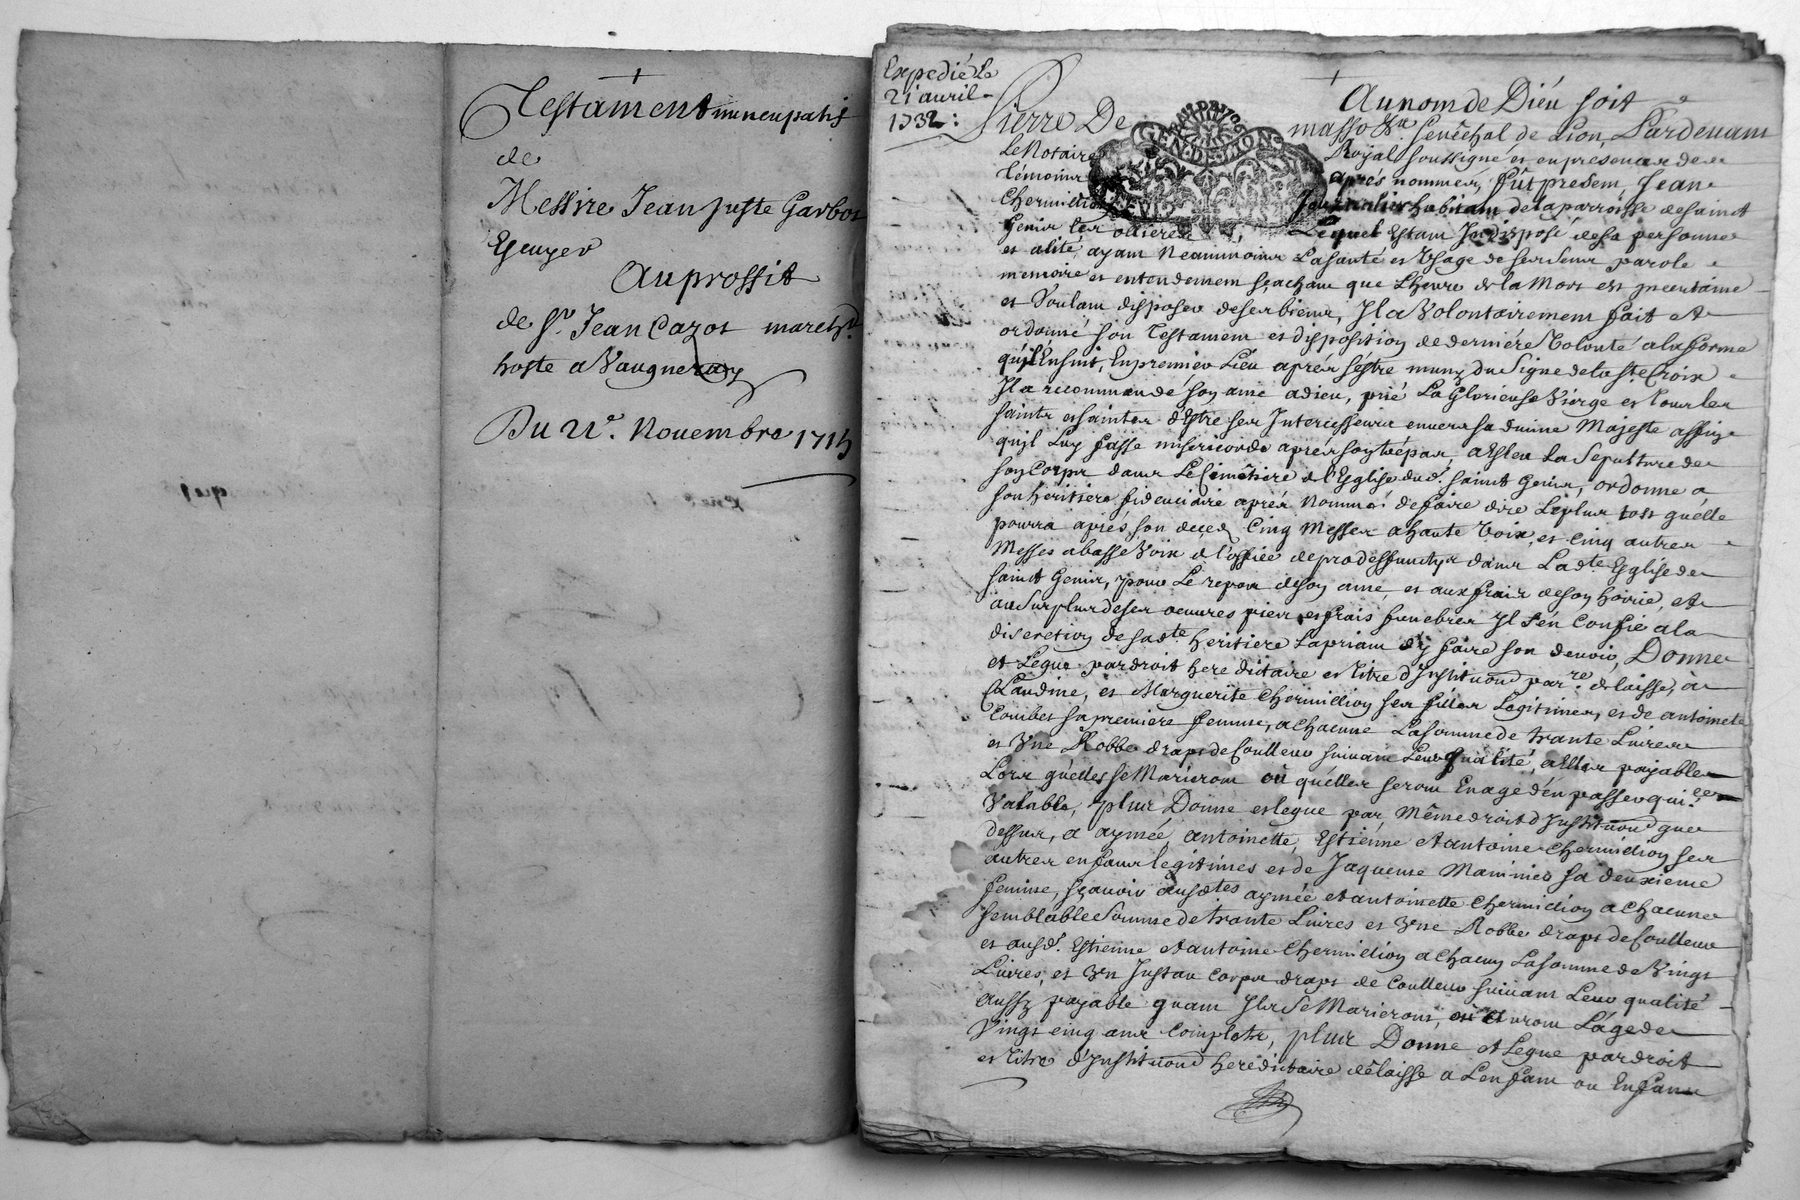 Testament nuncupatif
de
Messire Jean Juste Garbot
Escuyer
Auproffit
de Sr. Jean Cazot march.d
hoste a Vaugneray
Du 22e. Novembre 1715
Expedié Le
21 avril
1732:
Au nom de Dieu soit
Pierre De masso Sénéchal de Lion, Pardevant
Le Notaire Royal soussigné et en presence des
témoins après nommés, fut present, Jean
Chermillion Journalier habitant de la parroisse de sainct
Genis les ollieres, Lequel Estant Indisposé de sa personne
et alité, ayant Neanmoins La santé et Usage de ses sens parole
memoire et entendement sçachant que L'heure de la Mort est incertaine
et Voulant disposer de ses biens, Il a Volontairement fait et
ordonné son Testament et disposition de derniére Volonté a la forme
qu'il Ensuit, En premier Lieu apres s'éstre muny du Signe de la Ste. Croix
Il a recommandé son ame a dieu, prié La Glorieuse Vierge et tous les
saints et saintes d'Estre ses Intercesseurs envers sa divine Majesté affin
qu'il Luy fasse misericorde aprés son trépas, a Esleu La Sepulture de
son Corps dans Le Cimêtiere de l'Eglise dud. sainct Genis, ordonne a
son héritiére fideiciaire aprés Nommée de faire dire Le plus tost qu'elle
pourra aprés son decez Cinq Messes a haute Voix, et Cinq autres
Messes a basse Voix de l'office de pro deffunctys dans Lad.te Eglise de
sainct Genis, pour Le repos de son ame, et aux frais de son hoirie, et
au Surplus de ses oeuvres pies et frais funebres Il s'én Confie a la
discretion de sad.te heritiere La priant d'y faire son devoir, Donne
et Legue par droit hereditaire et titre d'Institution par.re delaisse, a
Claudine, et Marguerite Chermillion ses filles Legitimes, et de antoinete
Combet sa premiere femme, a Chacune La somme de trante Livres
et Une Robbe draps de Coulleur suivant Leur qualité, a Elles payables
Lors qu'elles se Marieront ou qu'elles seront En age d'én passer quit.ces
Valable, plus Donne et legue par Même droit d'Institution que
dessus, a aymée, antoinette, Estienne et antoine Chermillion ses
autres enfans legitimes et de Jaquema Mannier sa deuxieme
femme, sçavoir ausd.tes aymée et antoinette Chermillion a Chacune
semblable Somme de trante Livres et Une Robbe draps de Coulleur
et ausd. Estienne et antoine Chermillion a Chacun La somme de Vingt
Livres, et Un Justau Corps draps de Coulleur suivant Leur qualité
aussy payable quant Ils se Marieront, ou auront L'âge de
Vingt cinq ans Complets, plus Donne et Legue par droit
et titre d'Institution hereditaire délaisse a L'enfant ou Enfans